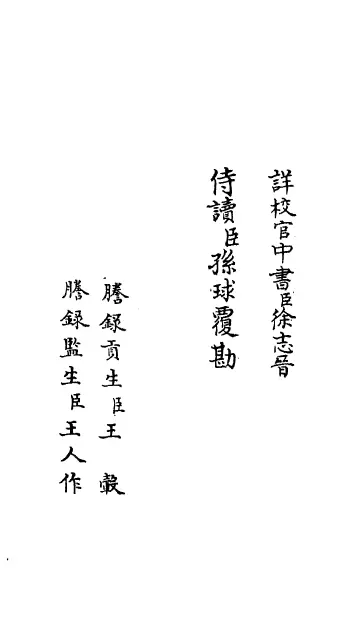 詳校官中書臣徐志晉
侍讀臣孫球覆勘
謄錄貢生臣王瑴
謄錄監生臣王人作